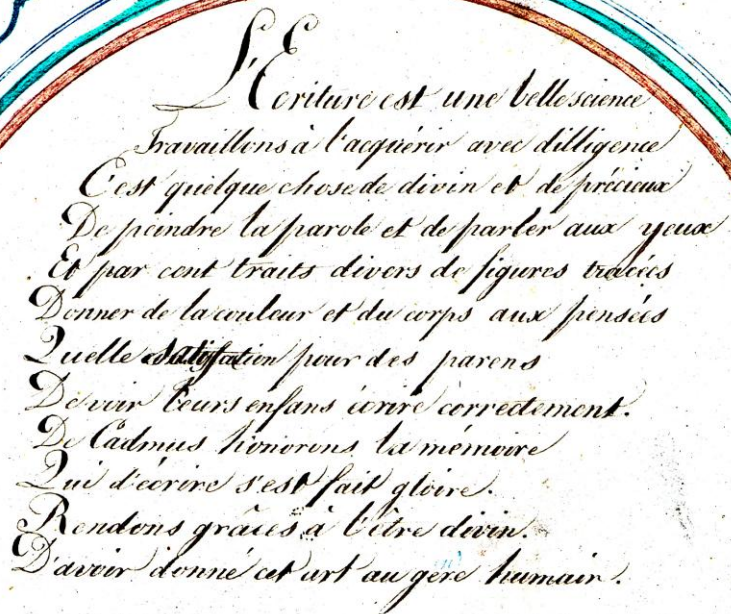 L'Ecriture est une belle science
Travaillons à l'acquérir avec dilligence
C'est quelque chose de divin et de précieux
De peindre la parole et de parler aux yeux
Et par cent traits divers de figures tracées
Donner de la couleur et du corps aux pensées
Quelle satisfation pour des parens
De voir leurs enfans écrire correctement.
De Cadmus honorons la mémoire
Qui d'écrire s'est fait gloire.
Rendons grâces à l'être divin.
D'avoir donné cet art au gere humain.